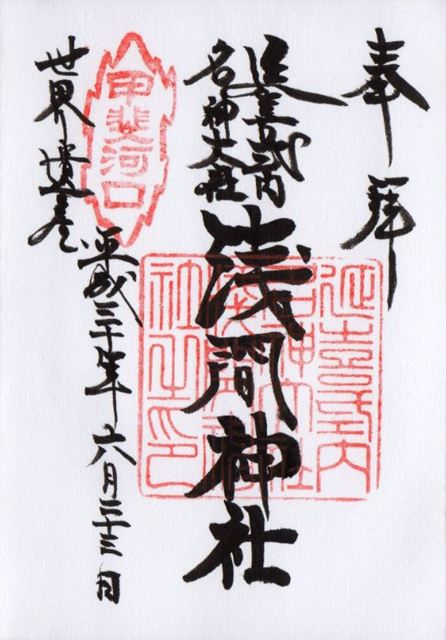 奉拝
延喜式内
名神大社
浅間神社
甲斐河口
世界遺産
平成三十年六月二十三日
延喜式内
名神大社
浅間神
社之印